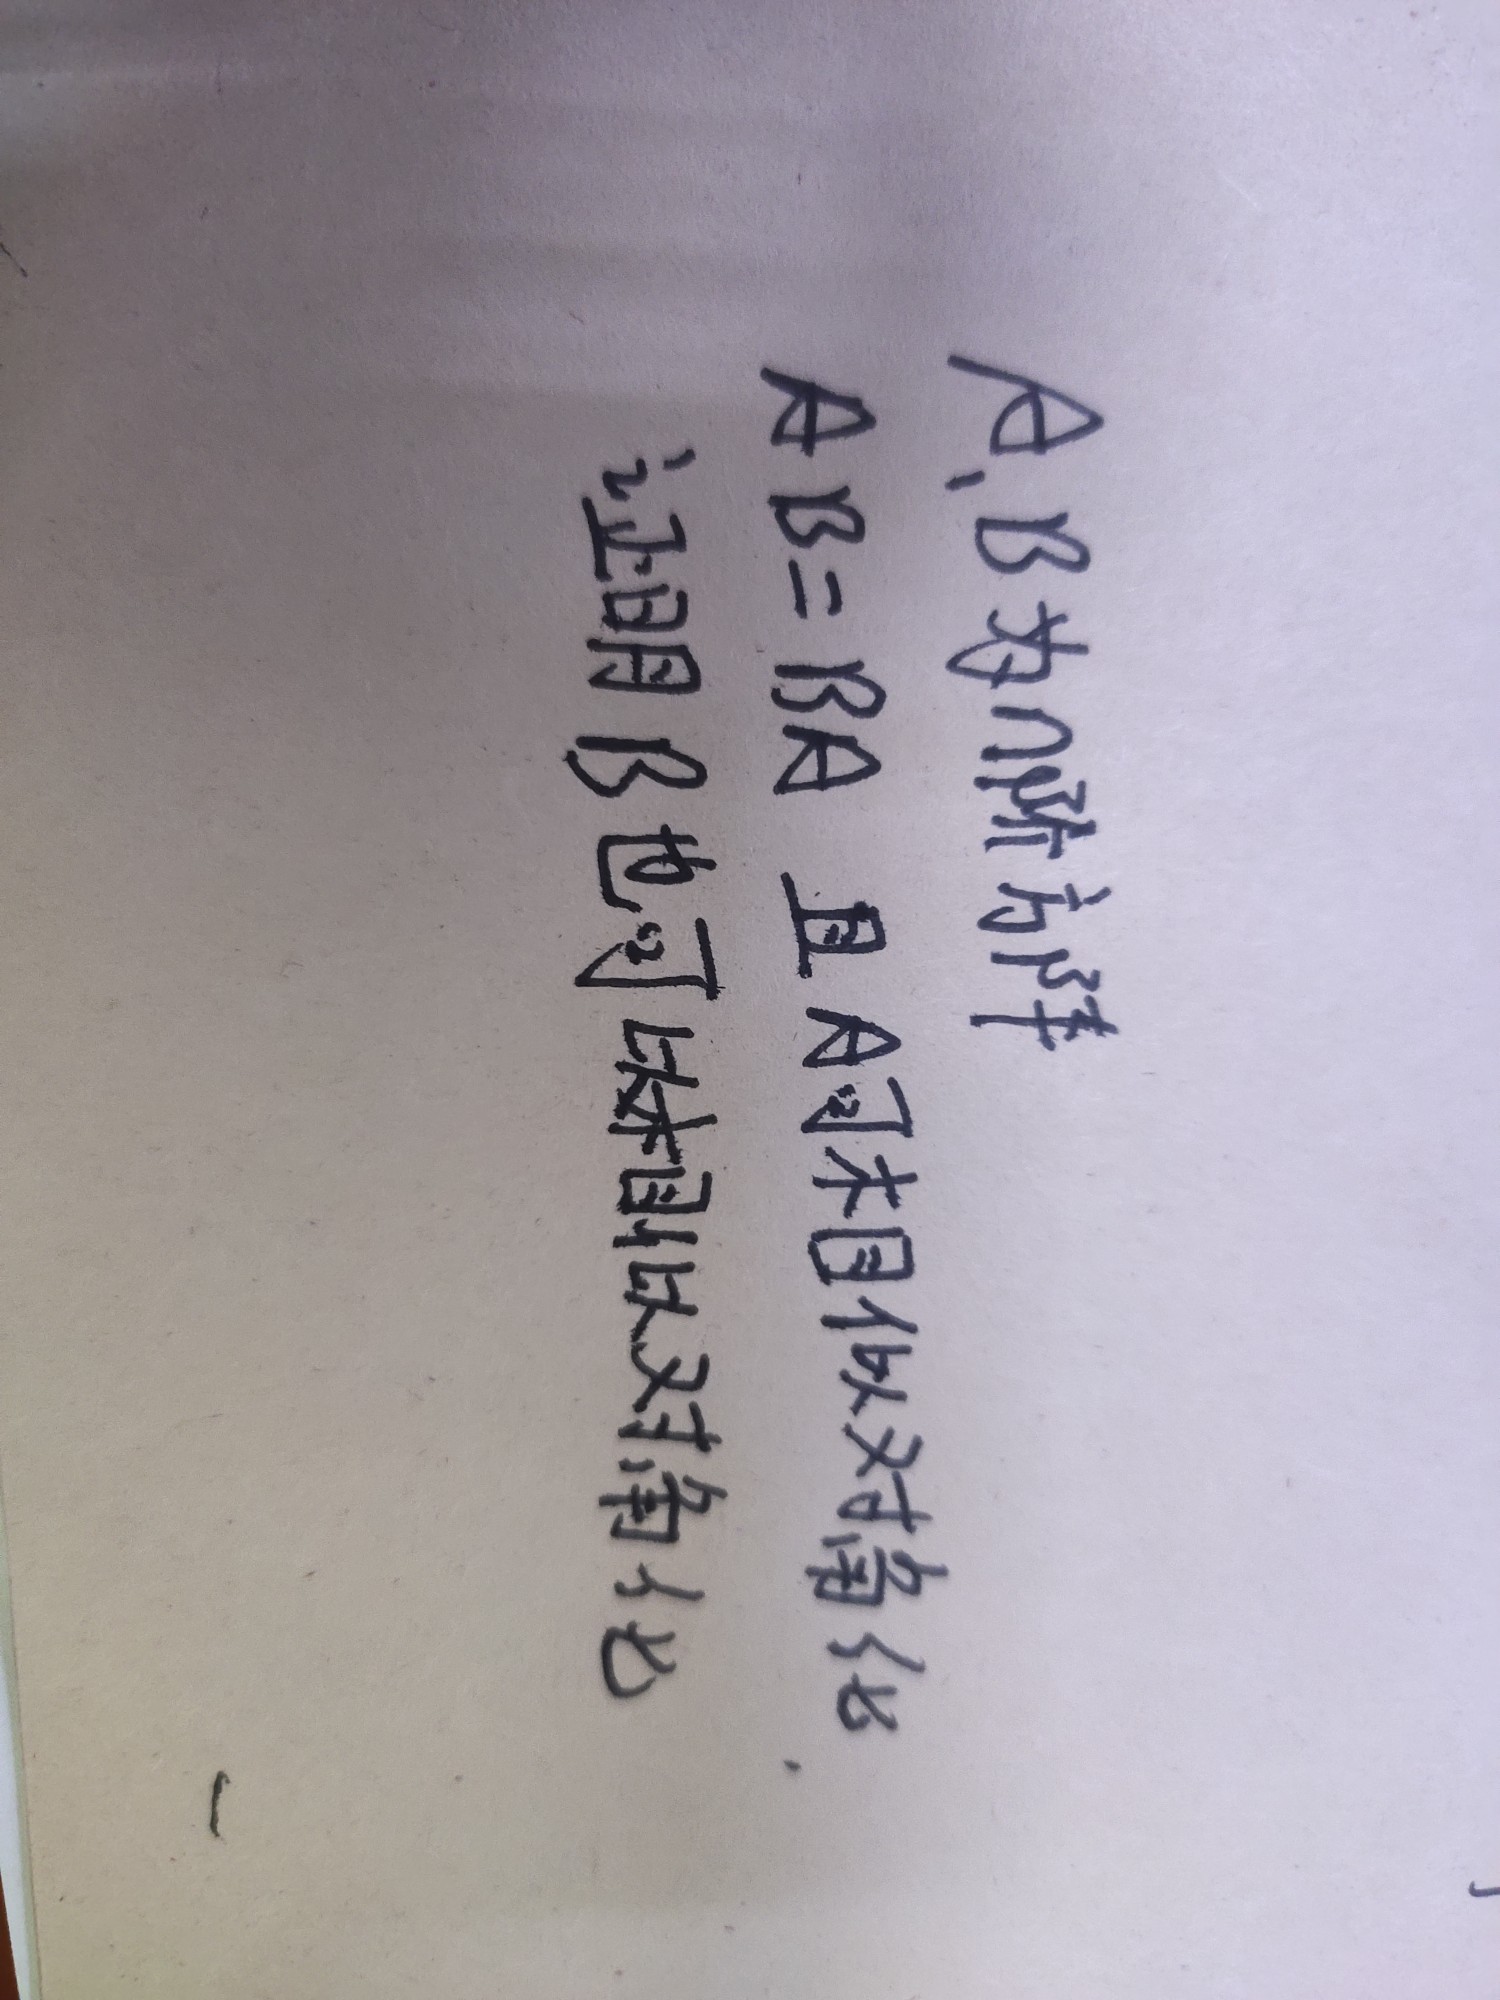 A、B为n阶方阵
AB=BA 且A可相似对角化.
证明B也可以相似对角化